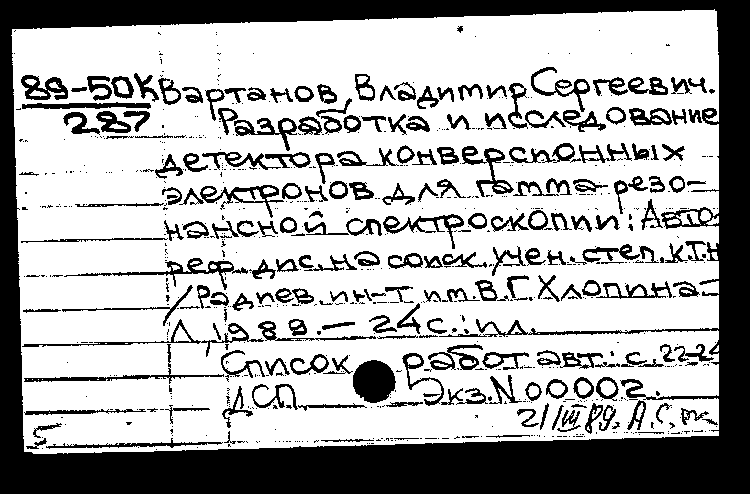 89-50К Вартанов, Владимир Сергеевич.
287 Разработка и исследование
детектора конверсионных
электронов для гамма-резо-
нансной спектроскопии: Авто-
реф. дис. на соиск. учен. степ. к.т.н
/Радиев. ин-т им. В.Г. Хлопина-
Л, 1989. - 24 с.: ил.
Список работ авт.: с. 22-24
ДСП. Экз. N 00002.
21/III 89. А.С.
5